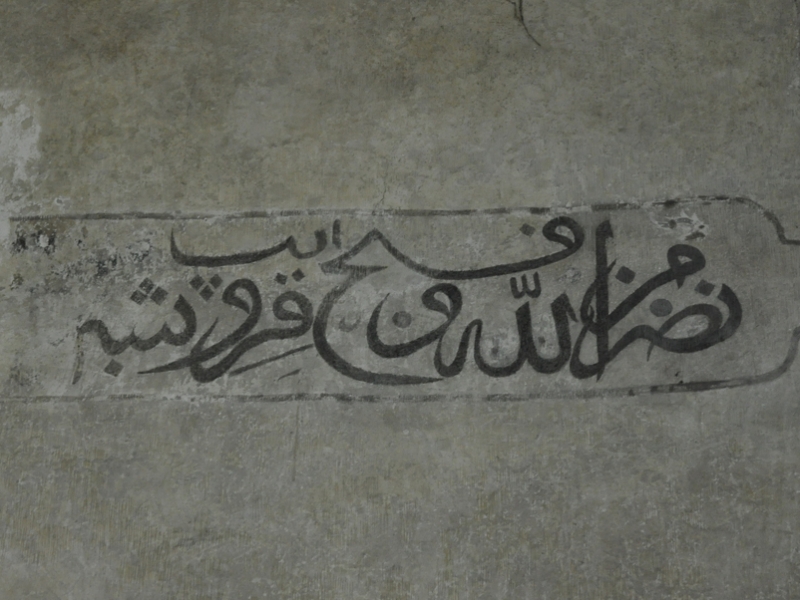 نصر من الله و فتح قریب و بشر